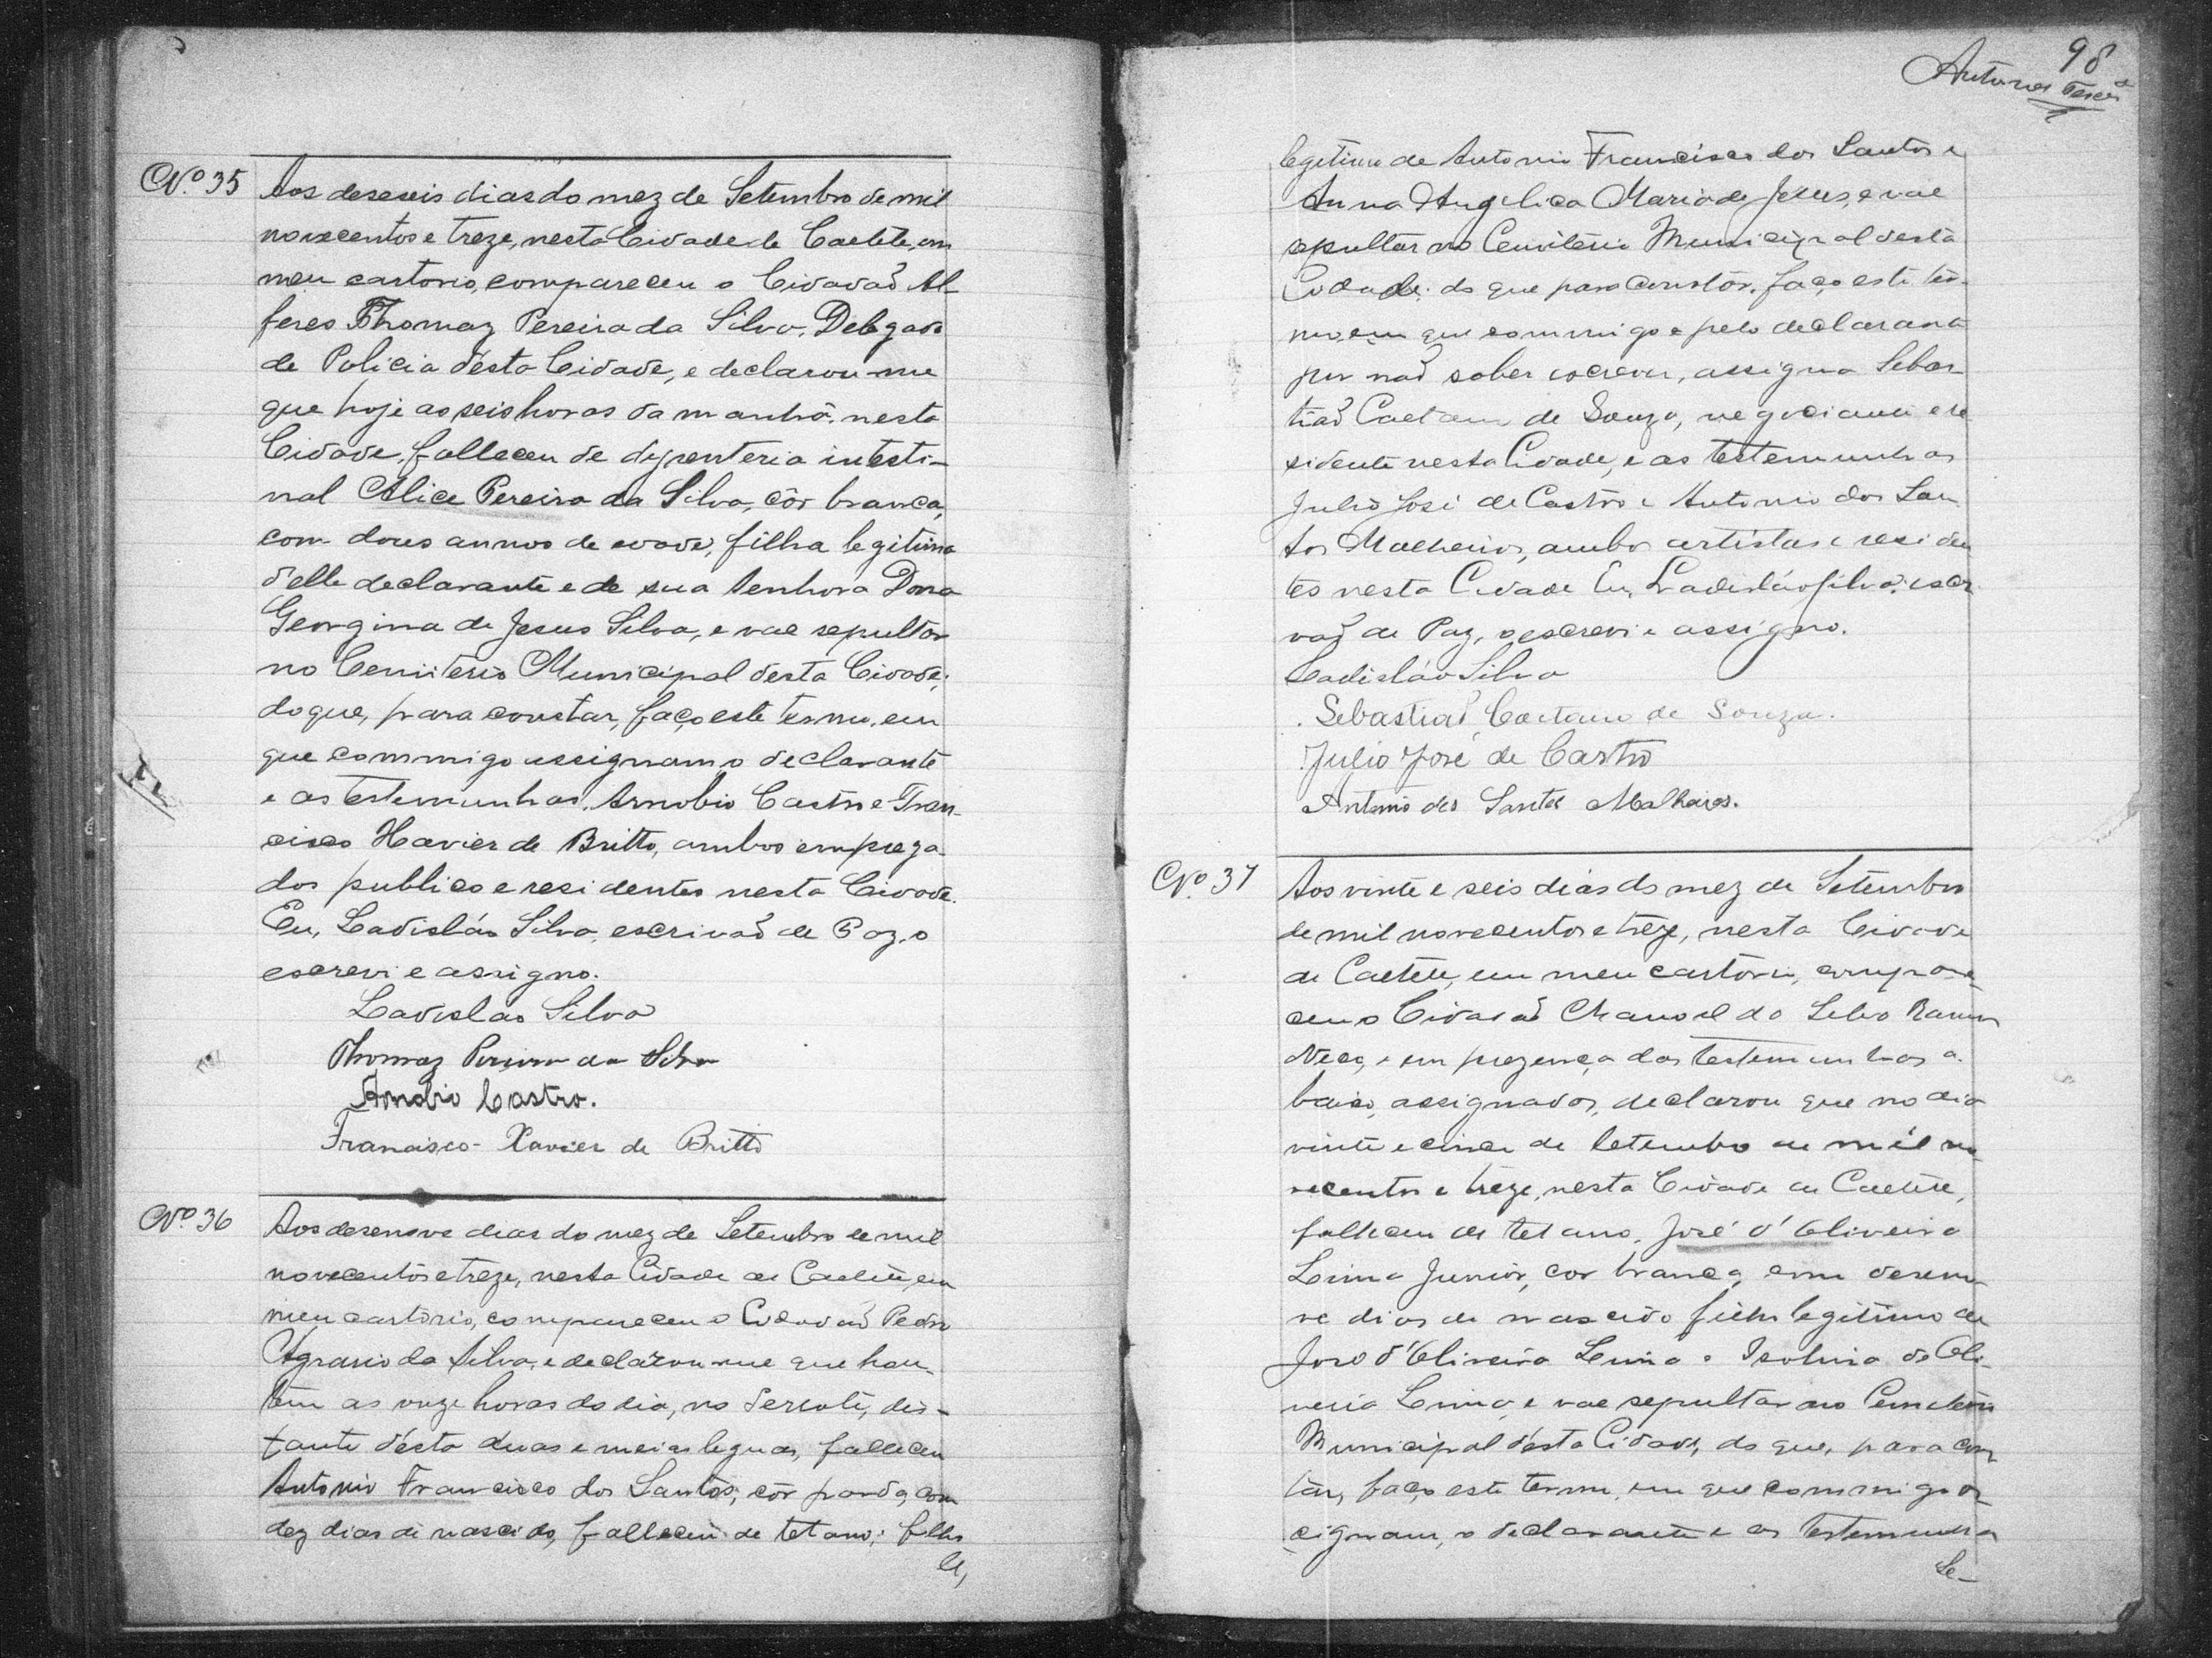 Nº 35
Aos deseseis dias do mez de Setembro de mil
novecentos e treze, nesta Cidade de Caeteté, em
meu cartorio, compareceu o Cidadaõ Al-
feres Thomaz Pereira da Silva, Delegado
de Policia désta Cidade, e declarou-me
que hoje as seis horas da manhã, nesta
Cidade, falleceu de dyzenteria intesti-
nal Alice Pereira da Silva, côr branca,
com dous annos de edade, filha legitima
d'elle declarante e de sua Senhora Dona
Georgina de Jesus Silva, e vae sepultar
no Cemiterio Municipal desta Cidade;
do que, para constar, faço este termo, em
que commigo assignam o declarante
e as testemunhas, Arnobio Castro e Fran-
cisco Xavier de Britto, ambos emprega-
dos publico e residentes nesta Cidade.
Eu, Ladisláo Silva, escrivaõ de Paz, o
escrevi e assigno.
Ladislao Silva
Thomaz Pereira da Silva
Arnobio Castro.
Francisco Xavier de Britto
Nº 36
Aos desenove dias do mez de Setembro de mil
novecentos e treze, nesta Cidade de Caeteté, em
meu cartorio, compareceu o Cidadaõ Pedro
da Silva, e declarou-me que hon-
tem as onze horas do dia, no
tante désta duas e meias leguas, falleceu
Antonio Francisco dos Santos, côr parda, com
dez dias de nascido, falleceu de tetano; filho
le,
98
legitimo de Antonio Francisco dos Santos e
Anna Angelica Maria de Jesus, e vae
sepultar no Cemiterio Municipal desta
Cidade; do que para constar, faço este ter-
mo, em que commigo e pelo declarante
por naõ saber escrever, assigna Sebas-
tiaõ Caetano de Souza, negociante e re-
sidente nesta Cidade, e as testemunhas
Julio José de Castro e Antonio dos San-
tos Malheiros, ambos artistas e residen-
tes nesta Cidade Eu, Ladisláo Silva, escri-
vaõ de Paz, o escrevi e assigno.
Ladisláo Silva
Sebastiaõ Caetano de Souza.
Julio José de Castro
Antonio dos Santos Malheiros.
Nº 37
Aos vinte e seis dias do mez de Setembro
de mil novecentos e treze, nesta Cidade
de Caeteté, em meu cartorio, compare-
ceu o Cidadaõ Manoel da Silva
e em prezença das testemunhas a-
baixo, assignados, declarou que no dia
vinte e cinco de Setembro de mil no-
vecentos e treze, nesta Cidade de Caeteté,
falleceu de tetano, José d'Oliveira
Lima Junior, cor branca, com deseno-
ve dias de nascido filho legitimo de
José d'Oliveira Lima e Isolina de Oli-
veira Lima, e vae sepultar no Cemiterio
Municipal désta Cidade, do que, para cons-
tar, faço este termo, em que commigo as-
signam, o declarante e as testemunhas
Se-